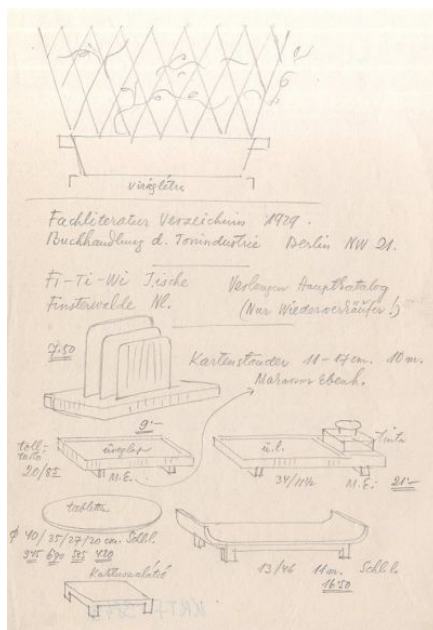 virágláda
Fachliteratur Verzeichnis 1929.
Buchhandlung d. Tonindustrie Berlin NW 21.
Fi-Ti-Wi Tische
Finsterwalde NL.
Verlangen Hauptkatalog
(Nur Wiederverkäufer!)
7.50
Kartenständer 11-17 cm. 10 m.
Marmor Ebenh.
9.-
toll-
tartó
20/8½
üveglap
M.E.
ü.l.
Tinta
34/11½
M.E.: 21.-
tabletta
φ 40/35/27/20 cm. Schl.
945 690 585 420
13/46 11 m. Schl.
16.50